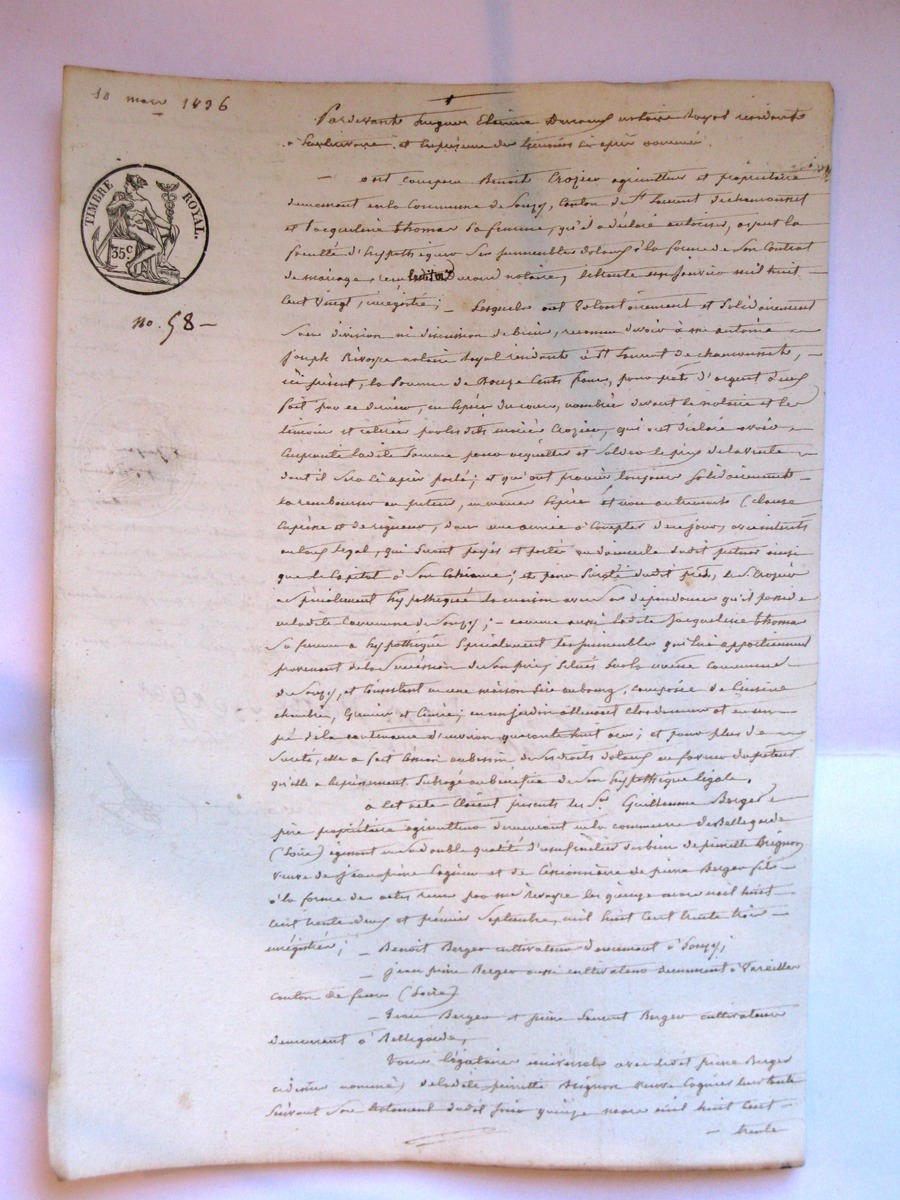 10 mars 1836
TIMBRE ROYAL.
35c
no. 58 –
Pardevant Jacques Etienne notaire royal résidant
à et en présence des témoins ci après nommés
– ont comparu Benoit Crozier agriculteur et propriétaire
demeurant en la Commune de Souzy, Canton de St Laurent de chamousset
et Jacqueline thomas sa femme, qu'il a déclaré autoriser, ayant la
faculté d'hypothéquer ses immeubles dotaux à la forme de son Contrat
de mariage, reçu notaire, le trente un janvier mil huit
cent vingt, enrégistré; – Lesquels ont volontairement et Solidairement
sans division ni discussion de biens, reconnu devoir à me antoine
joseph Rivoyre notaire royal résidant à St Laurent de chamousset, –
ici présent, la Somme de Douze Cents francs, pour prêt d'argent à eux
fait par ce dernier, en espèces du cours, nombrées devant le notaire et les
témoins et retirées par lesdits mariés Crozier, qui ont déclaré avoir
emprunté ladite Somme pour acquitter et solder le prix de la vente
dont il sera ci après parlé; et qu'ont promis toujours solidairement
la rembourser au prêteur, en mêmes espèces et non autrement (clause
expresse et de rigueur, dans une année à Compter de ce jour, avec intérêts
au taux légal, qui seront payés et portés au domicile dudit prêteur ainsi
que le Capital à son échéance; et pour sureté dudit prêt, le Sr Crozier
a spécialement hypothéqué la maison avec ses dépendances qu'il possède
en ladite Commune de Souzy; – comme aussi ladite Jacqueline thomas
sa femme a hypothéqué Spécialement les immeubles qui lui appartiennent
provenant de la Succession de Son père, Situés Sur la même commune
de Souzy, et Consistant en une maison Sise au bourg, composée de Cuisine
chambre, Grenier et Écurie; en un jardin attenant clos de murs et en un
pré de la contenance d'environ quarante huit ares; et pour plus de
Sureté, elle a fait Cession au besoin, de ses droits dotaux en faveur du prêteur
qu'elle a expressément Subrogé au bénéfice de Son hypothèque légale.
a cet acte étaient présents les Srs Guillaume Berger
père propriétaire agriculteur demeurant en la commune de Bellegarde
(Loire) agissant en sa double qualité d'usufruitier des biens de pierrette Brignon
veuve de jean pierre Cognier et de Cessionnaire de pierre Berger fils
à la forme des actes reçus par me Rivoyre les quinze mars mil huit
cent trente deux et premier Septembre, mil huit Cent trente trois
enrégistrés; – Benoit Berger cultivateur demeurant à Souzy;
– jean pierre Berger aussi cultivateur demeurant à
canton de feurs (Loire)
– Berger et pierre Laurent Berger cultivateurs
demeurant à Bellegarde,
tous légataires universels avec ledit pierre Berger
ci dessus nommé, de ladite pierrette Brignon veuve Cognier leur tante
Suivant Son testament dudit jour quinze mars mil huit Cent
– trente